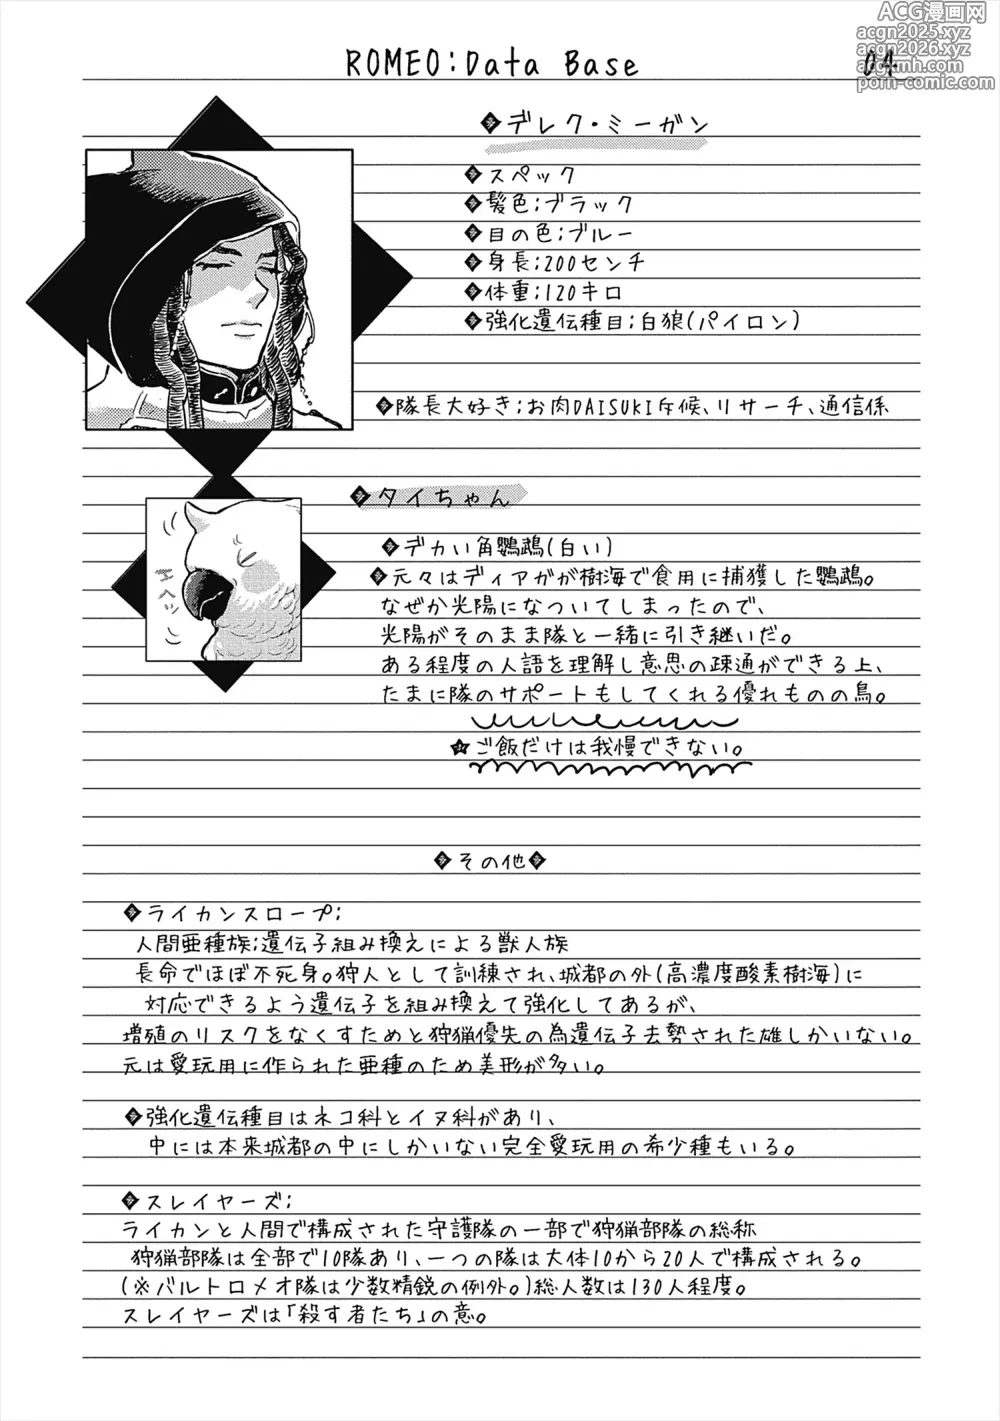 ACG漫画网
acgn2025.xyz
acgn2026.xyz
acgmh.com
porn-comic.com
ROMEO:Data Base
04
デレク・ミーガン
スペック
髪色;ブラック
目の色;ブルー
身長;200センチ
体重;120キロ
強化遺伝種目;白狼(パイロン)
隊長大好き;お肉DAISUKI斥候、リサーチ、通信係
タイちゃん
エヘッ
デカい角鸚鵡(白い)
元々はディアガが樹海で食用に捕獲した鸚鵡。
なぜか光陽になついてしまったので、
光陽がそのまま隊と一緒に引き継いだ。
ある程度の人語を理解し意思の疎通ができる上、
たまに隊のサポートもしてくれる優れものの鳥。
ご飯だけは我慢できない。
その他
ライカンスロープ;
人間亜種族;遺伝子組み換えによる獣人族
長命でほぼ不死身。狩人として訓練され、城都の外(高濃度酸素樹海)に
対応できるよう遺伝子を組み換えて強化してあるが、
増殖のリスクをなくすためと狩猟優先の為遺伝子去勢された雄しかいない。
元は愛玩用に作られた亜種のため美形が多い。
強化遺伝種目はネコ科とイヌ科があり、
中には本来城都の中にしかいない完全愛玩用の希少種もいる。
スレイヤーズ;
ライカンと人間で構成された守護隊の一部で狩猟部隊の総称
狩猟部隊は全部で10隊あり、一つの隊は大体10から20人で構成される。
(※バルトロメオ隊は少数精鋭の例外。)総人数は130人程度。
スレイヤーズは「殺す者たち」の意。